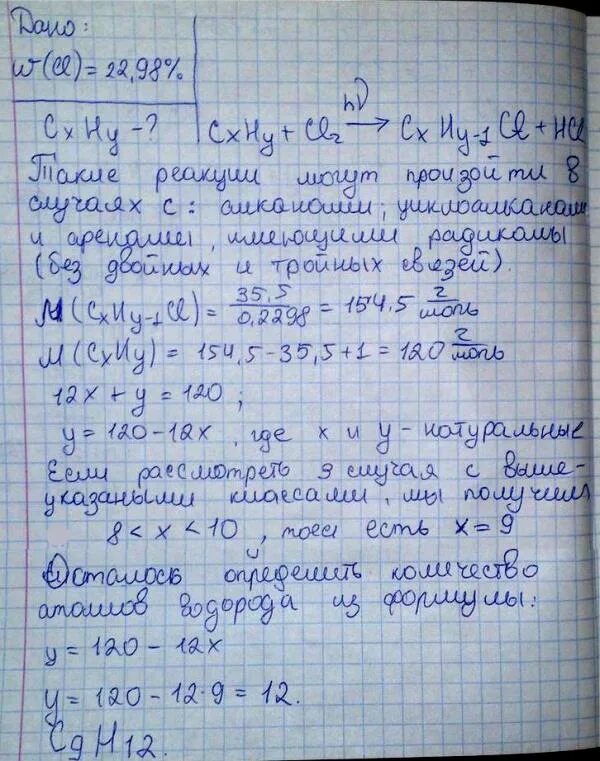 Дано:
w(Cl) = 22,98%
CxHy - ? CxHy + Cl₂ —hν→ CxHy-1Cl + HCl
Такие реакции могут произойти в
случаях с: алканами, циклоалканами
и аренами, имеющими радикалы
(без двойных и тройных связей).
M(CxHy-1Cl) = 35,5/0,2298 = 154,5 г/моль
M(CxHy) = 154,5 - 35,5 + 1 = 120 г/моль
12x + y = 120;
y = 120 - 12x, где x и y - натуральные
Если рассмотреть 3 случая с выше-
указаными классами, мы получим
8 < x < 10, тоесть есть x = 9
Осталось определить количество
атомов водорода из формулы:
y = 120 - 12x
y = 120 - 12·9 = 12.
C₉H₁₂.